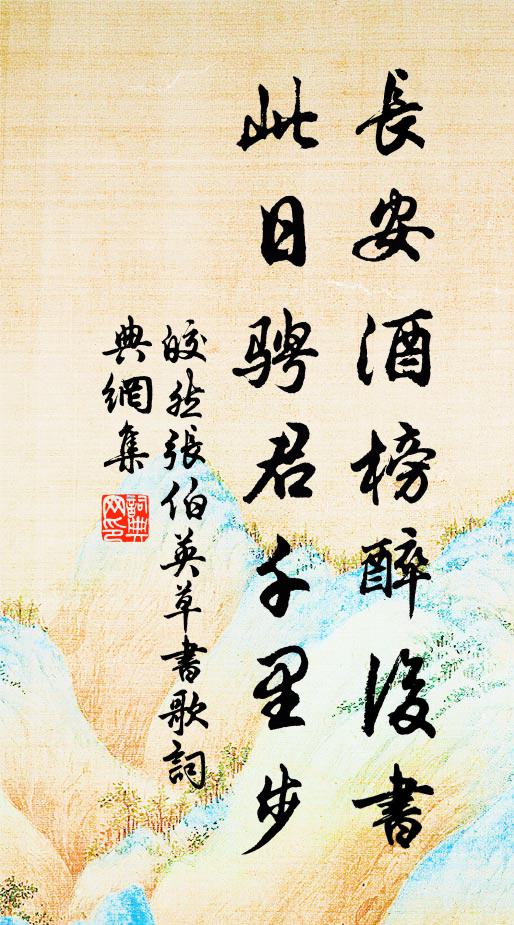 長安酒榜醉後書
此日騁君千里步
皎然張伯英草書歌詞
典網集
詞典
网印